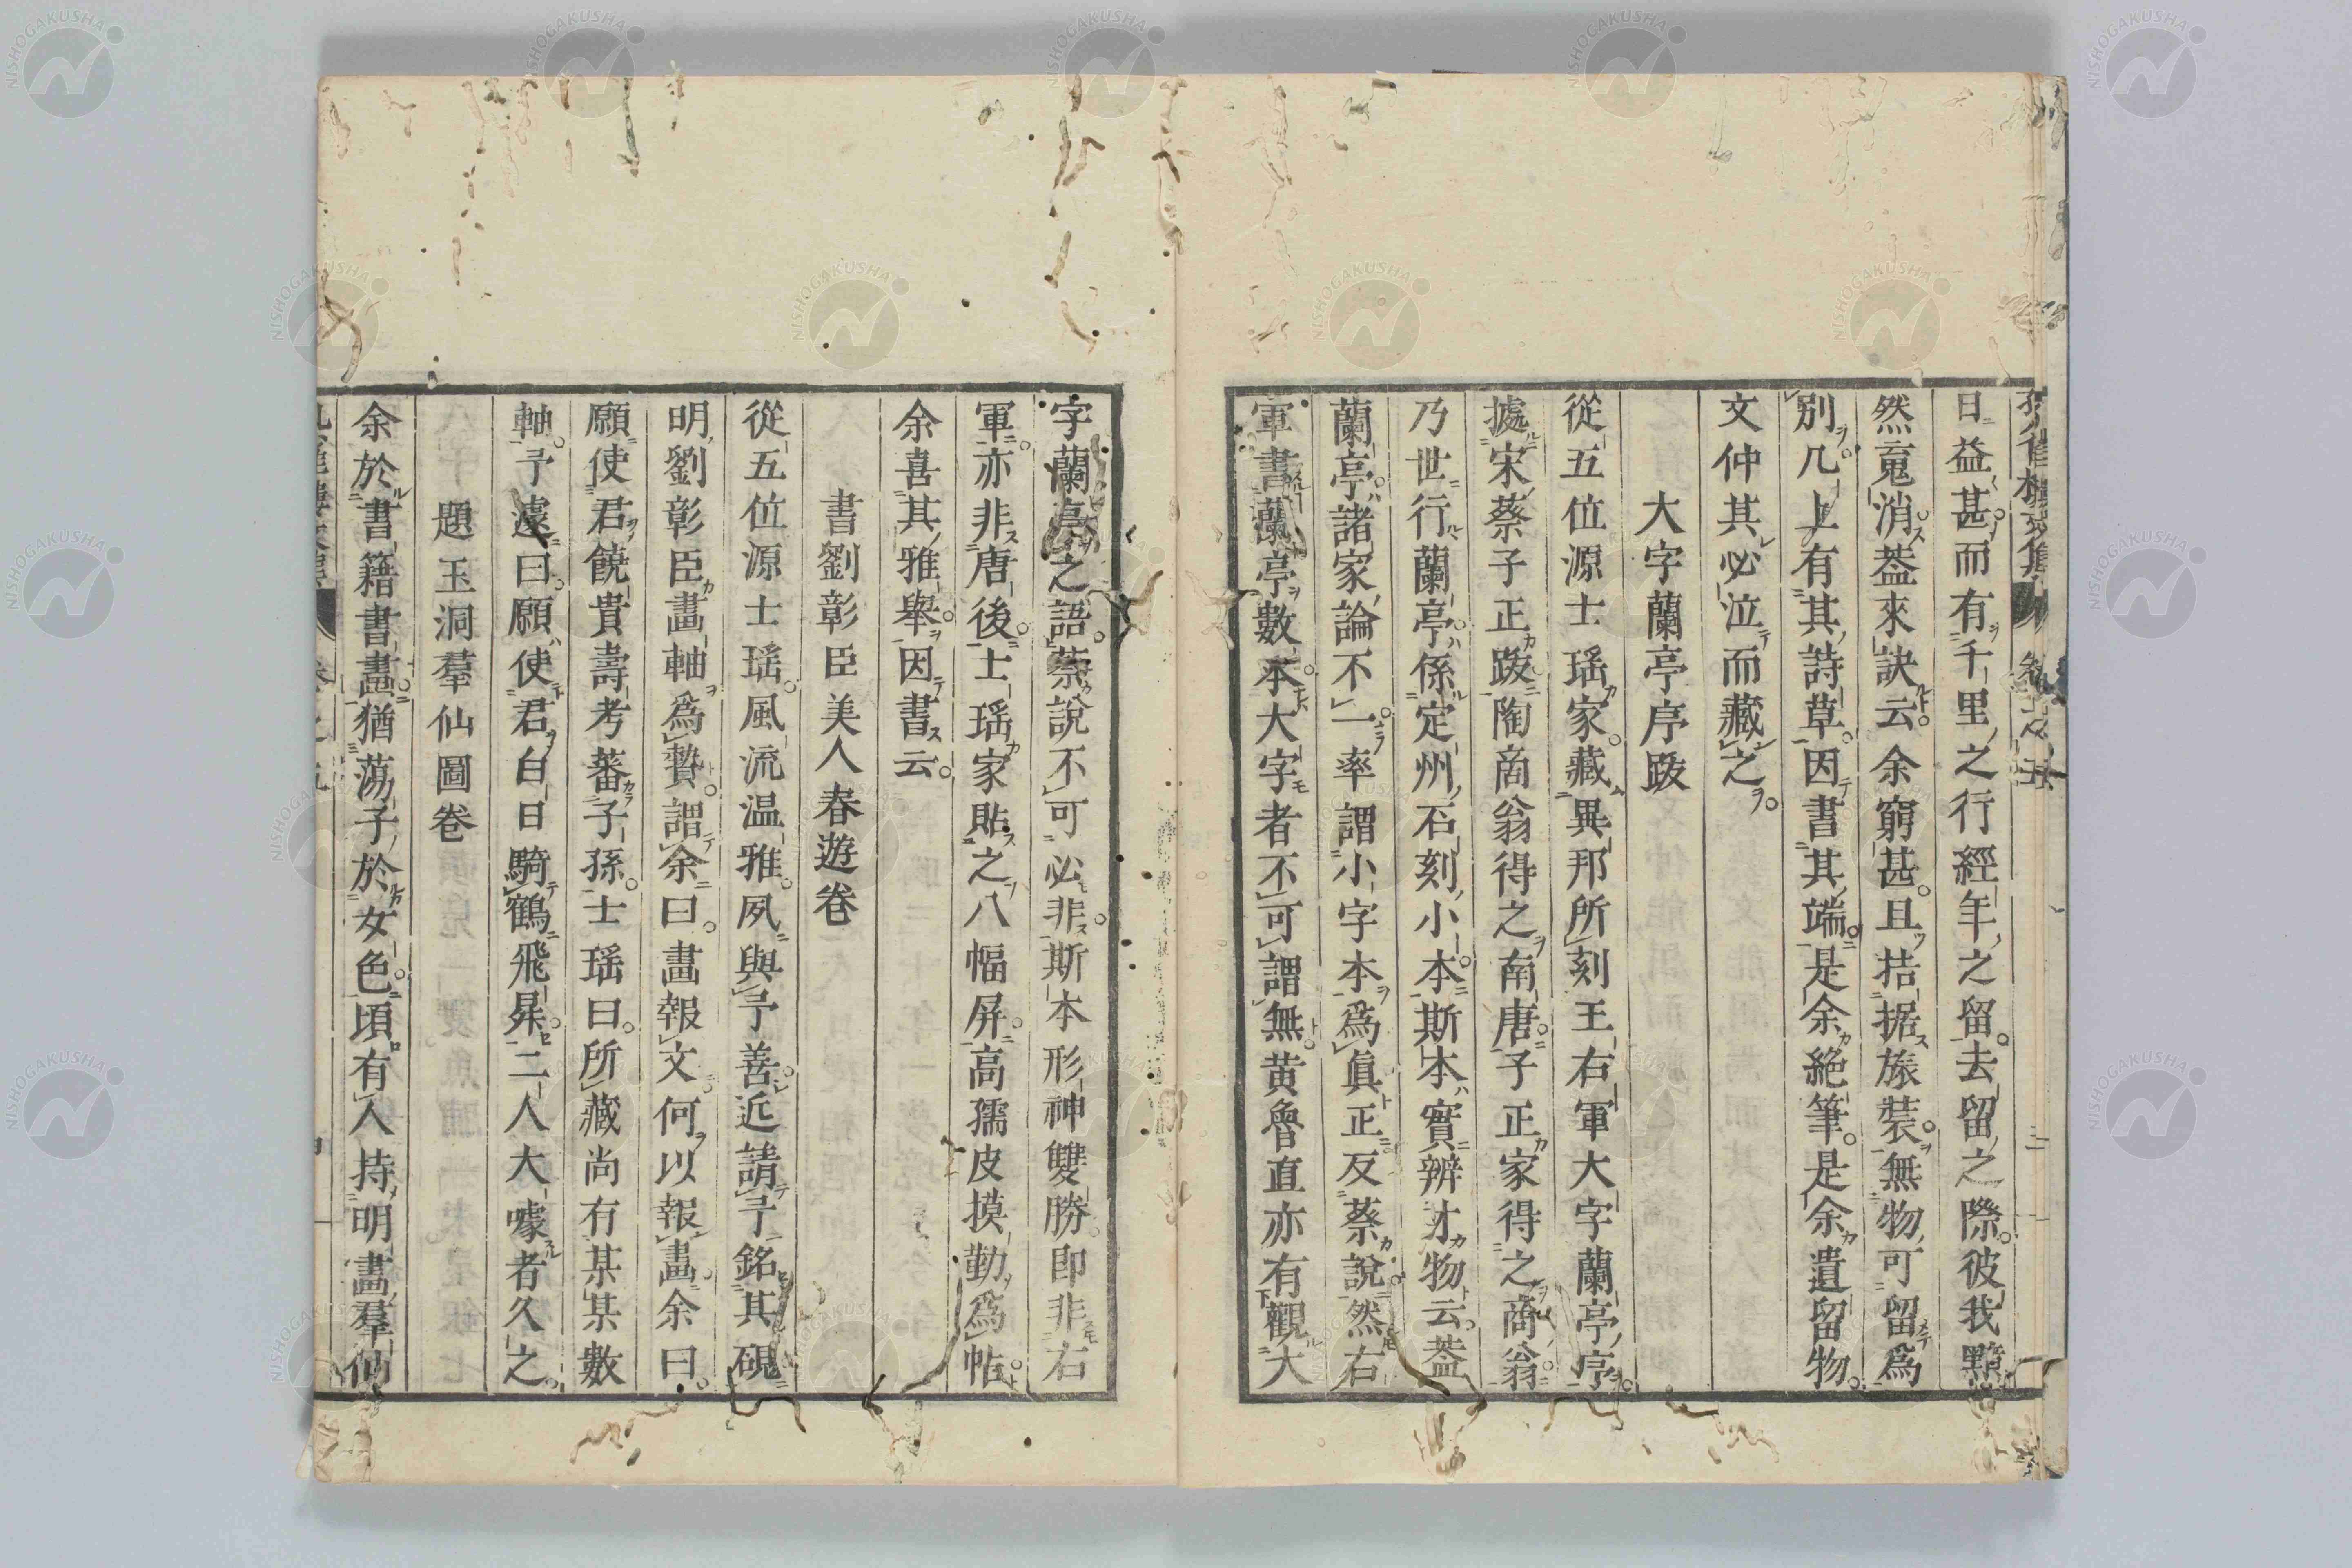 日益甚而有千里之行經年之留去留之際彼我黯
然䰟消葢來訣云余窮甚且拮据旅裝無物可留爲
別几上有其詩草因書其端是余絶筆是余遺留物
文仲其必泣而藏之
大字蘭亭序跋
從五位源士瑶家藏異邦所刻王右軍大字蘭亭序
據宋蔡子正跋陶商翁得之南唐子正家得之商翁
乃世行蘭亭係定州石刻小本斯本實辨才物云葢
蘭亭諸家論不一率謂小字本爲眞正反蔡説然右
軍書蘭亭數本大字者不可謂無黄魯直亦有觀大
字蘭亭之語蔡説不可必非斯本形神雙勝即非右
軍亦非唐後士瑶家貼之八幅屏高孺皮摸勒爲帖
余喜其雅擧因書云
書劉彰臣美人春遊卷
從五位源士瑶風流温雅夙與予善近請予銘其硯
明劉彰臣畫軸爲贄謂余曰畫報文何以報畫余曰
願使君饒貴壽考蕃子孫士瑶曰所藏尚有某某數
軸予遽曰願使君白日騎鶴飛昇二人大噱者久之
題玉洞羣仙圖卷
余於書籍書畫猶蕩子於女色頃有人持明畫羣仙
NISHOGAKUSHA